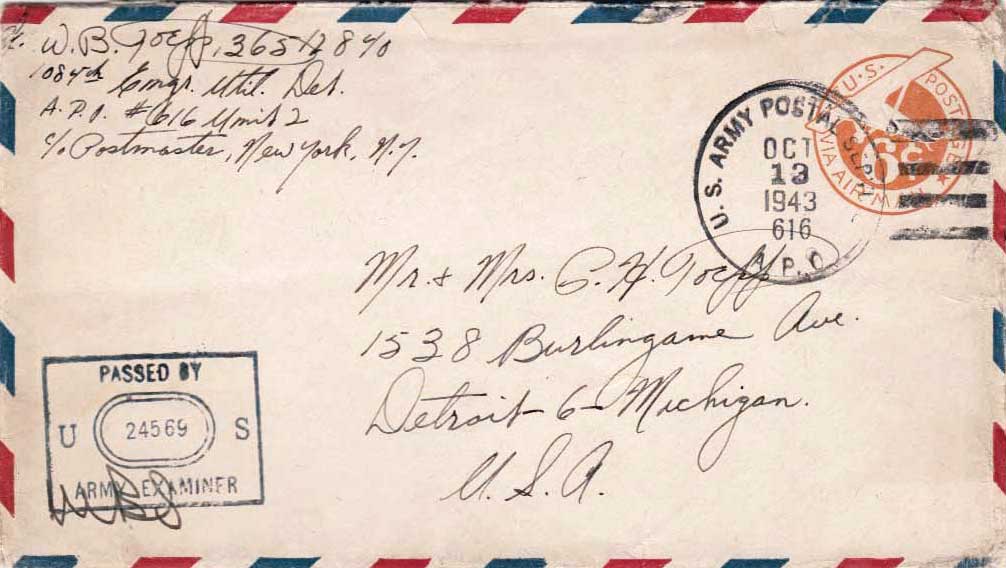 W. B. Toepp, 36517840
1084th Engr. Util. Det.
A. P. O. #616 Unit 2
c/o Postmaster, New York, N.Y.
U.S. POSTAGE
6¢
VIA AIR MAIL
U. S. ARMY POSTAL SERV.
OCT
13
1943
616
A. P. O.
Mr. & Mrs. C. H. Toepp
1538 Burlingame Ave.
Detroit - 6 - Michigan.
U. S. A.
PASSED BY
U 24569 S
ARMY EXAMINER